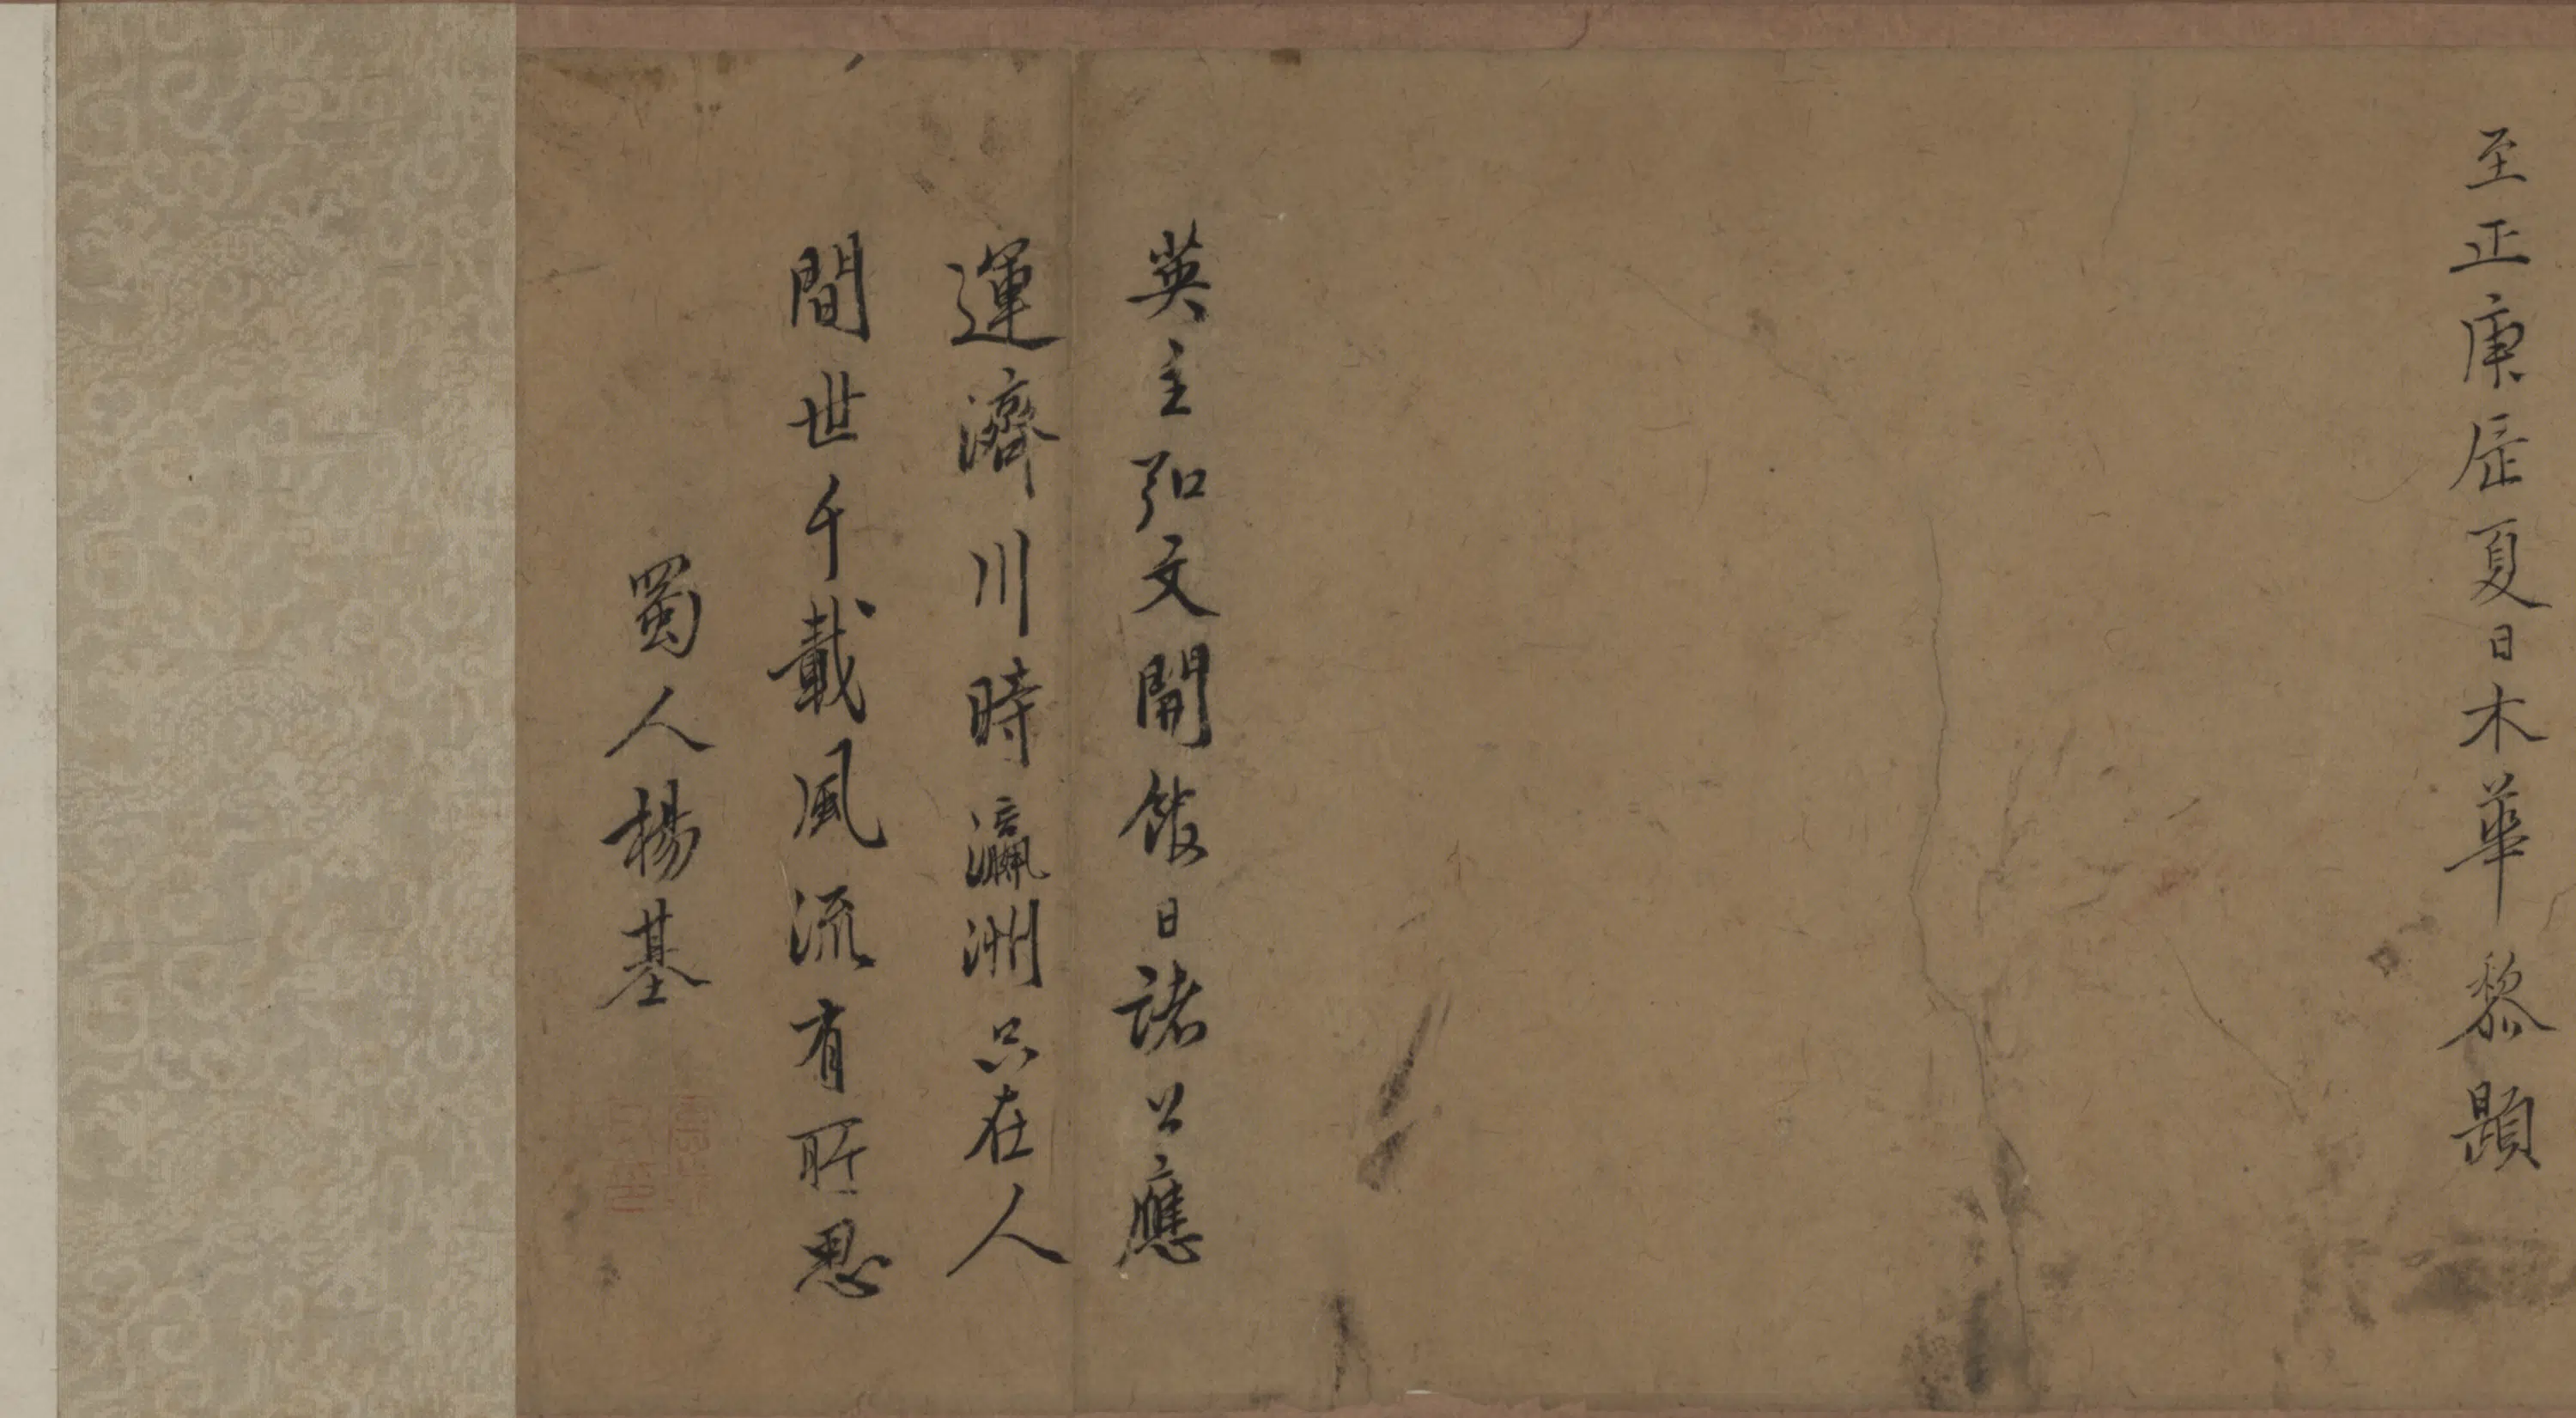 至正庚辰夏日木華黎題
英主弘文開館日諸公應
運濟川時瀛洲只在人
間世千載風流有所思
蜀人楊基